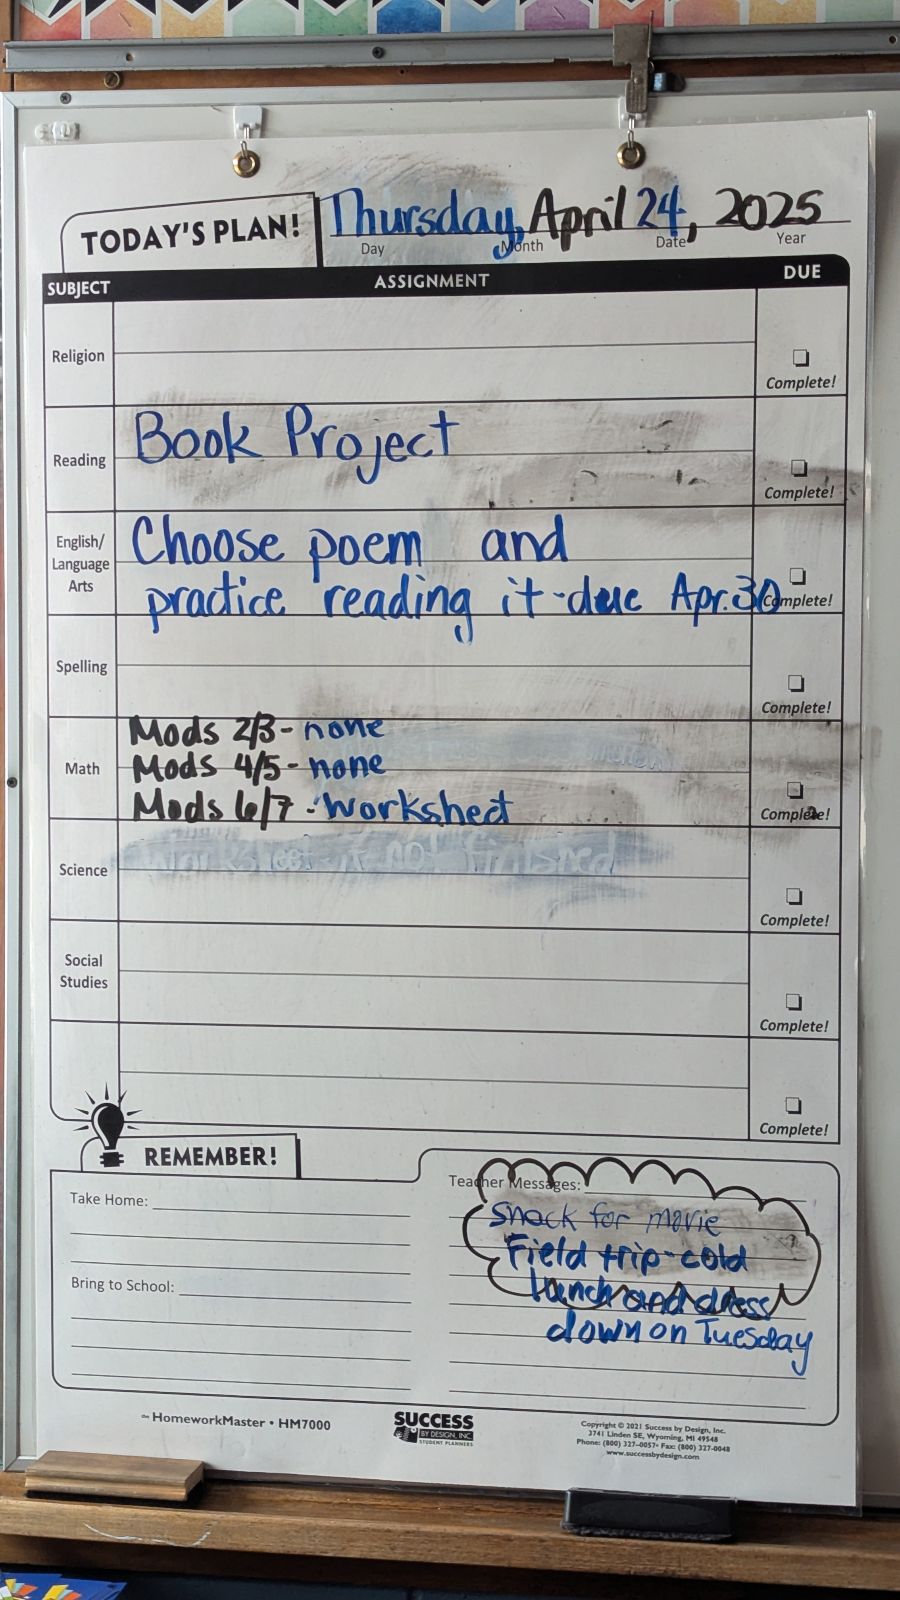 TODAY'S PLAN!
Thursday, April 24, 2025
Day Month Date Year
SUBJECT ASSIGNMENT DUE
Religion
Complete!
Book Project
Reading
Complete!
English/
Language
Arts
Choose poem and
practice reading it - due Apr. 30
Complete!
Spelling
Complete!
Math
Mods 2/3 - none
Mods 4/5 - none
Mods 6/7 - Worksheet
Complete!
Science
worksheet if not finished
Complete!
Social
Studies
Complete!
Complete!
REMEMBER!
Take Home:
Bring to School:
Teacher Messages:
snack for movie
Field trip - cold
lunch and dress
down on Tuesday
HomeworkMaster • HM7000
SUCCESS
BY DESIGN, INC.
STUDENT PLANNERS
Copyright © 2021 Success by Design, Inc.
3741 Linden SE, Wyoming, MI 49548
Phone: (800) 327-0057 • Fax: (800) 327-0048
www.successbydesign.com